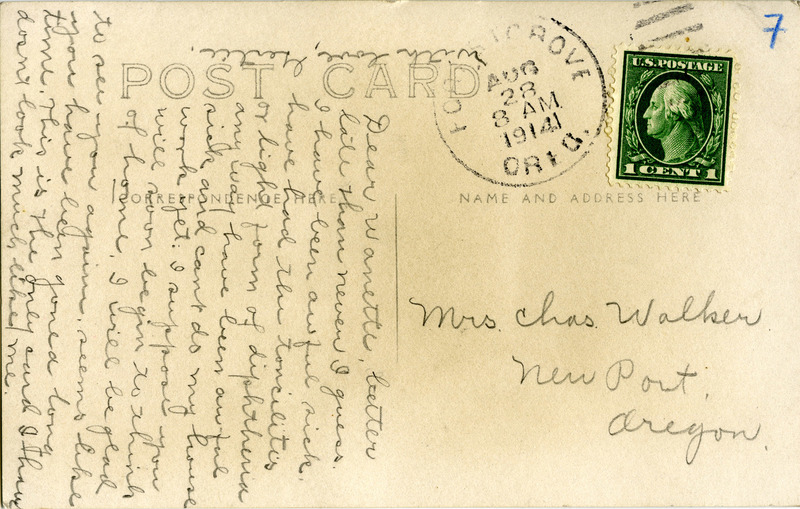 7
POST CARD
FOREST GROVE
AUG
28
8 AM
1914
OREG.
U.S. POSTAGE
1 CENT 1
CORRESPONDENCE HERE
NAME AND ADDRESS HERE
Dear Wanette, better
late than never I guess.
I have been awful sick.
have had the toncilites
or light form of diphtheria
any way have been awful
sick and cant do my house
work yet. I suppose you
will soon begin to think
of home. I will be glad
to see you again, seems like
you have been goned long
time. This is the only card I have
dosn't look much like me.
With love, Gertie.
Mrs. Chas. Walker.
New Port,
Oregon.